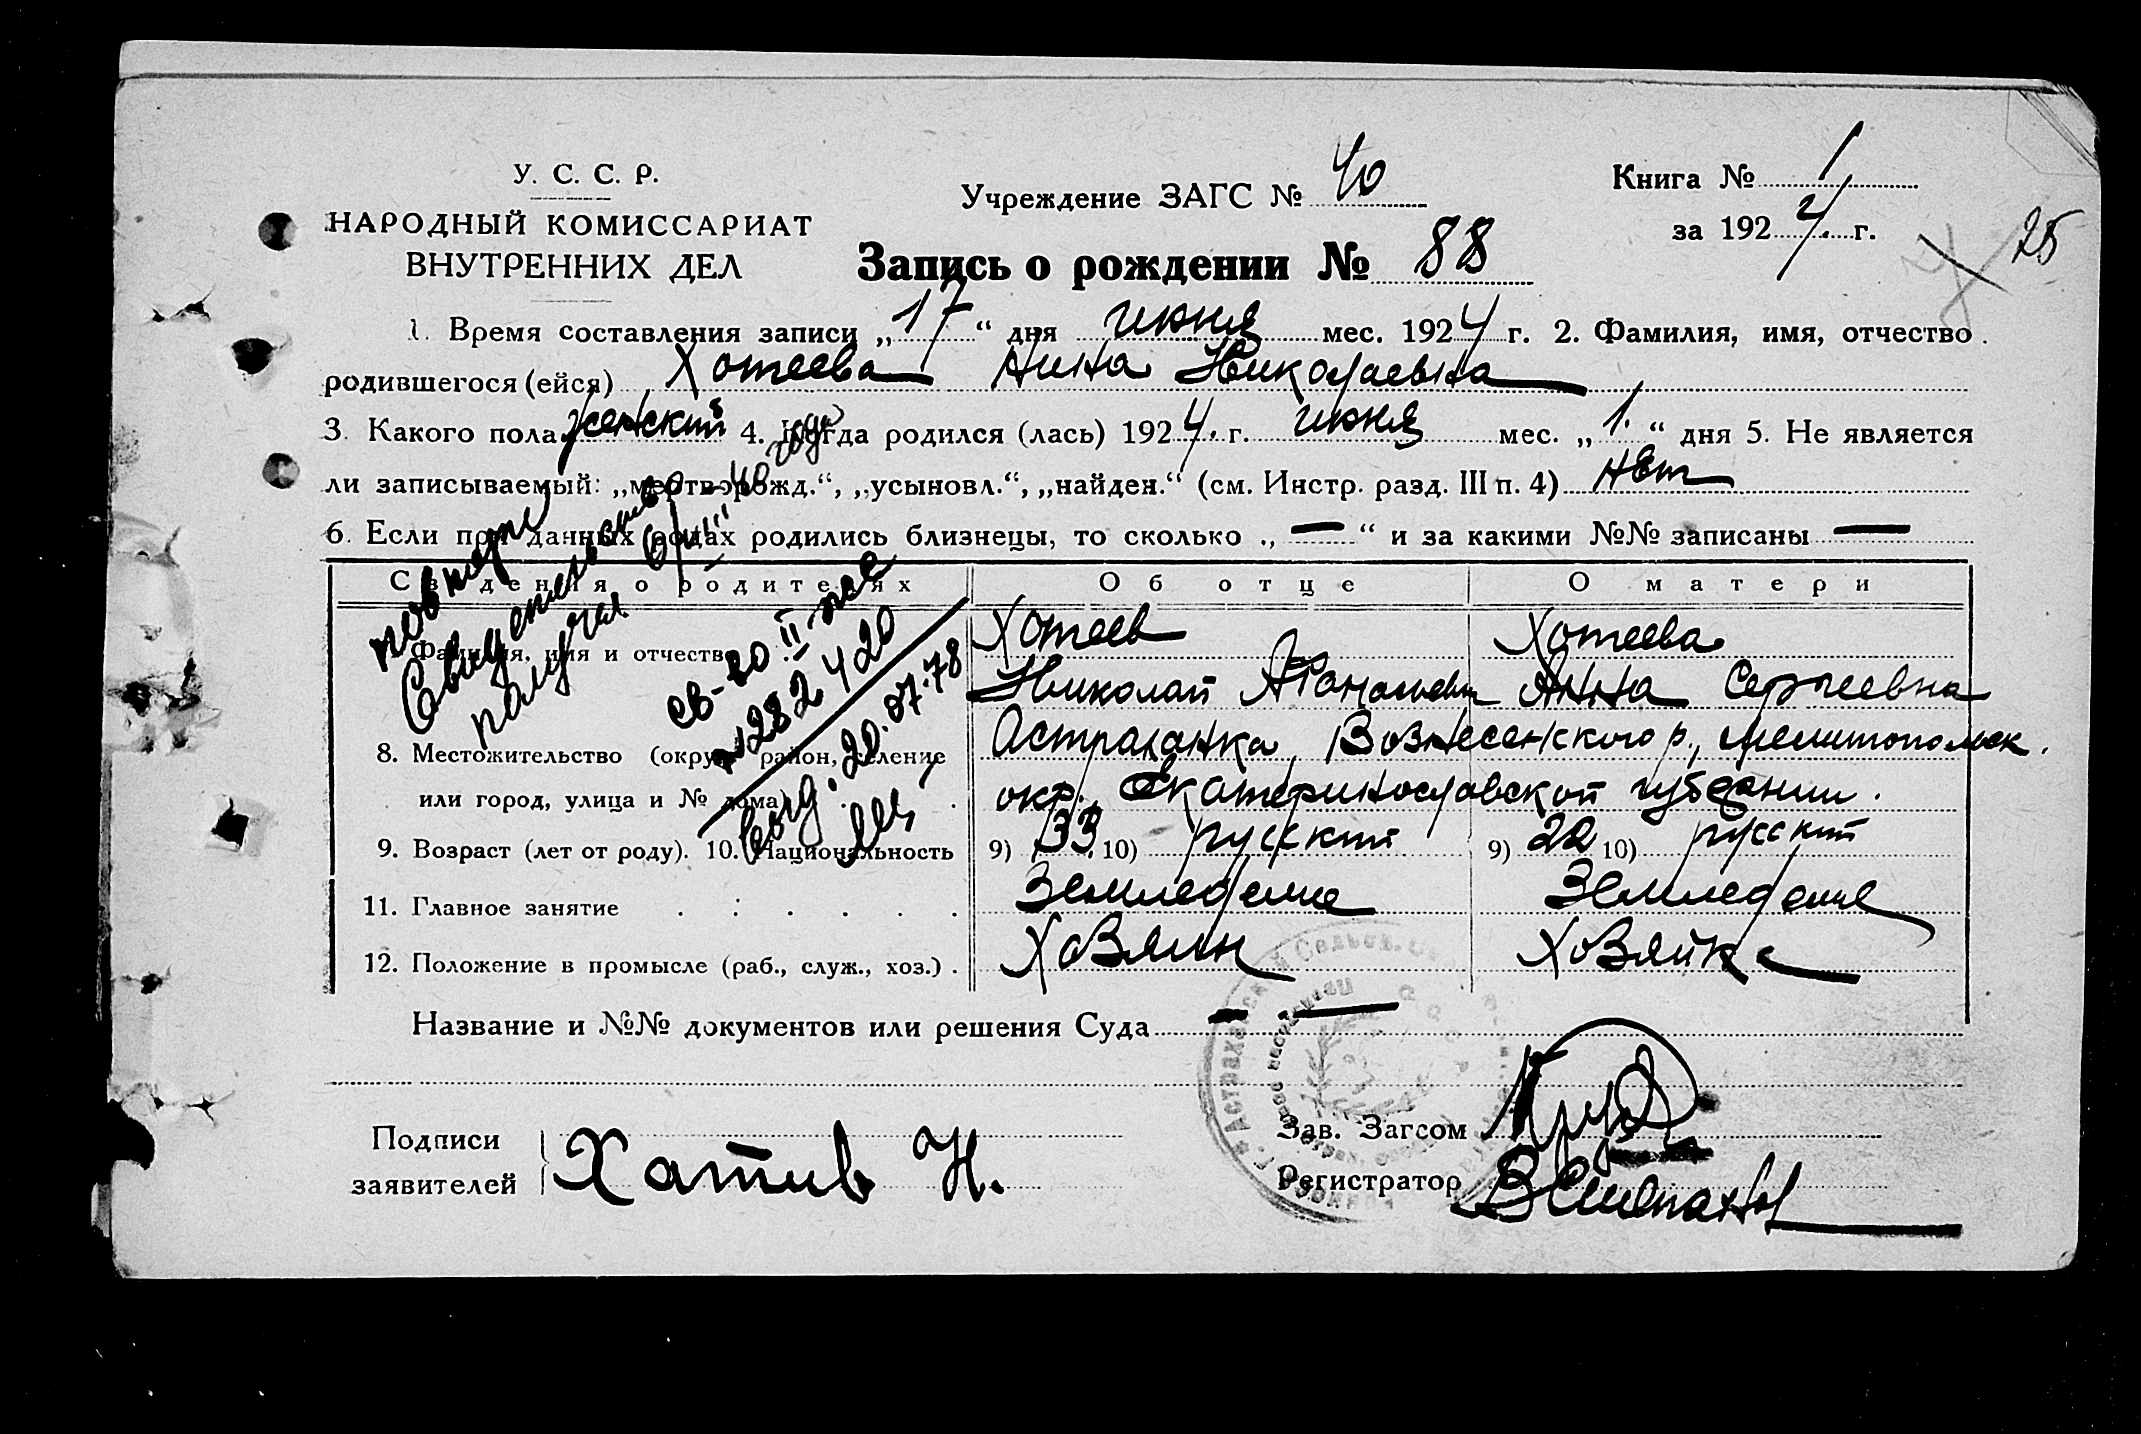 У. С. С. Р.
НАРОДНЫЙ КОМИССАРИАТ
ВНУТРЕННИХ ДЕЛ
Учреждение ЗАГС № 40
Книга № 1
за 1924 г.
25
Запись о рождении № 88
1. Время составления записи „17“ дня июня мес. 1924 г. 2. Фамилия, имя, отчество
родившегося (ейся) Хотеева Анна Николаевна
3. Какого пола женский 4. Когда родился (лась) 1924 г. июня мес. „1“ дня 5. Не является
ли записываемый: „мертворожд.“, „усыновл.“, „найден.“ (см. Инстр. разд. III п. 4) нет
6. Если при данных родах родились близнецы, то сколько „—“ и за какими №№ записаны —
повторн
Свидетельство
получил 6/III-40 года
св-во II-жс
№282420
Выд. 20.07.78
Сведения о родителях Об отце О матери
Фамилия, имя и отчество Хотеев Хотеева
Николай Афанасьевич Анна Сергеевна
8. Местожительство (округ, район, селение Астраханка, Вознесенского р., мелитопольск.
или город, улица и № дома) окр., Екатеринославской губернии.
9. Возраст (лет от роду). 10. Национальность 9) 33 10) русский 9) 22 10) русский
11. Главное занятие Земледелие Земледелие
12. Положение в промысле (раб., служ., хоз.) Хозяин Хозяйка
Название и №№ документов или решения Суда — —
Подписи
заявителей Хатив Н.
Зав. Загсом
Регистратор